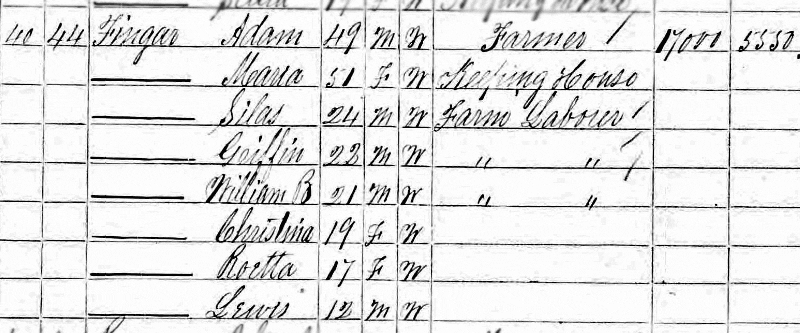 40 44 Fingar Adam 49 M W Farmer / 17000 5550
Maria 51 F W Keeping House
Silas 24 M W Farm Labourer /
Griffin 22 M W " " /
William B 21 M W " "
Christina 19 F W
Roetta 17 F W
Lewis 12 M W